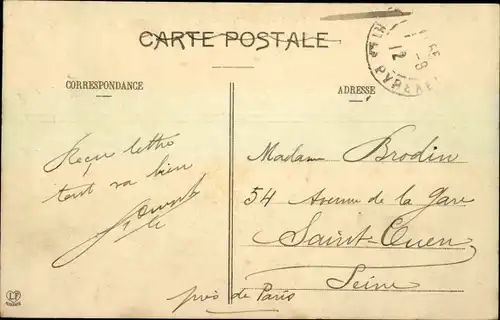 CARTE POSTALE
CORRESPONDANCE
ADRESSE
12
PYRENE
Reçu lettre
tout va bien
Madame Brodin
54 Avenue de la Gare
Saint-Ouen
Seine
près de Paris
LF